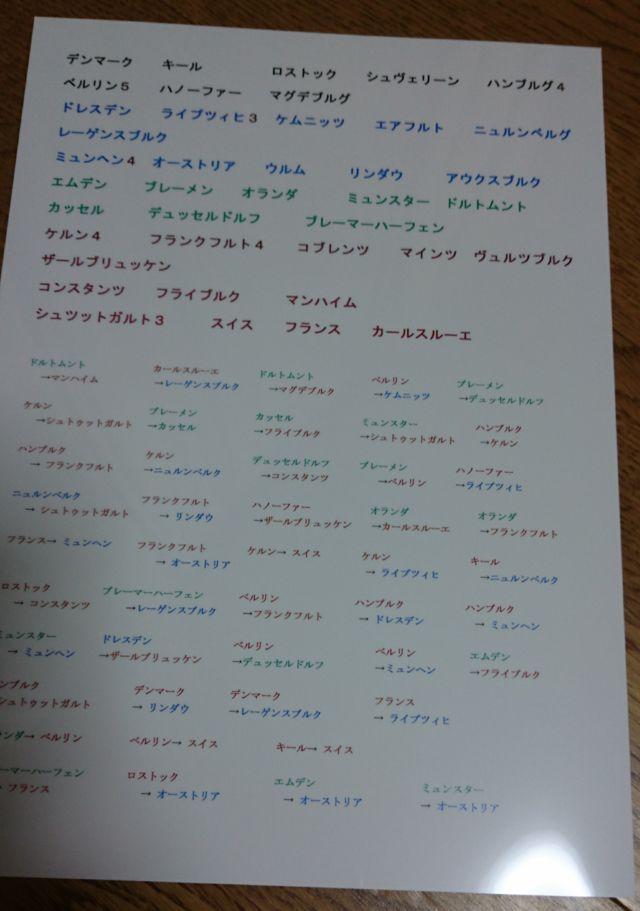 デンマーク キール ロストック シュヴェリーン ハンブルグ４
ベルリン５ ハノーファー マグデブルグ
ドレスデン ライプツィヒ３ ケムニッツ エアフルト ニュルンベルグ
レーゲンスブルク
ミュンヘン４ オーストリア ウルム リンダウ アウクスブルク
エムデン ブレーメン オランダ ミュンスター ドルトムント
カッセル デュッセルドルフ ブレーマーハーフェン
ケルン４ フランクフルト４ コブレンツ マインツ ヴュルツブルク
ザールブリュッケン
コンスタンツ フライブルク マンハイム
シュツットガルト３ スイス フランス カールスルーエ
ドルトムント カールスルーエ ドルトムント ベルリン ブレーメン
→マンハイム →レーゲンスブルク →マグデブルク →ケムニッツ →デュッセルドルフ
ケルン ブレーメン カッセル ミュンスター ハンブルク
→シュトゥットガルト →カッセル →フライブルク →シュトゥットガルト →ケルン
ハンブルク ケルン デュッセルドルフ ブレーメン ハノーファー
→ フランクフルト →ニュルンベルク →コンスタンツ →ベルリン →ライプツィヒ
ニュルンベルク フランクフルト ハノーファー オランダ オランダ
→ シュトゥットガルト → リンダウ →ザールブリュッケン →カールスルーエ →フランクフルト
フランス→ ミュンヘン フランクフルト ケルン→ スイス ケルン キール
→ オーストリア → ライプツィヒ →ニュルンベルク
ロストック ブレーマーハーフェン ベルリン ハンブルク ハンブルク
→ コンスタンツ →レーゲンスブルク →フランクフルト → ドレスデン → ミュンヘン
ミュンスター ドレスデン ベルリン ベルリン エムデン
→ ミュンヘン →ザールブリュッケン →デュッセルドルフ →ミュンヘン →フライブルク
ンブルク デンマーク デンマーク フランス
シュトゥットガルト → リンダウ →レーゲンスブルク → ライプツィヒ
ンダ→ ベルリン ベルリン→ スイス キール→ スイス
ーマーハーフェン ロストック エムデン ミュンスター
フランス → オーストリア → オーストリア → オーストリア